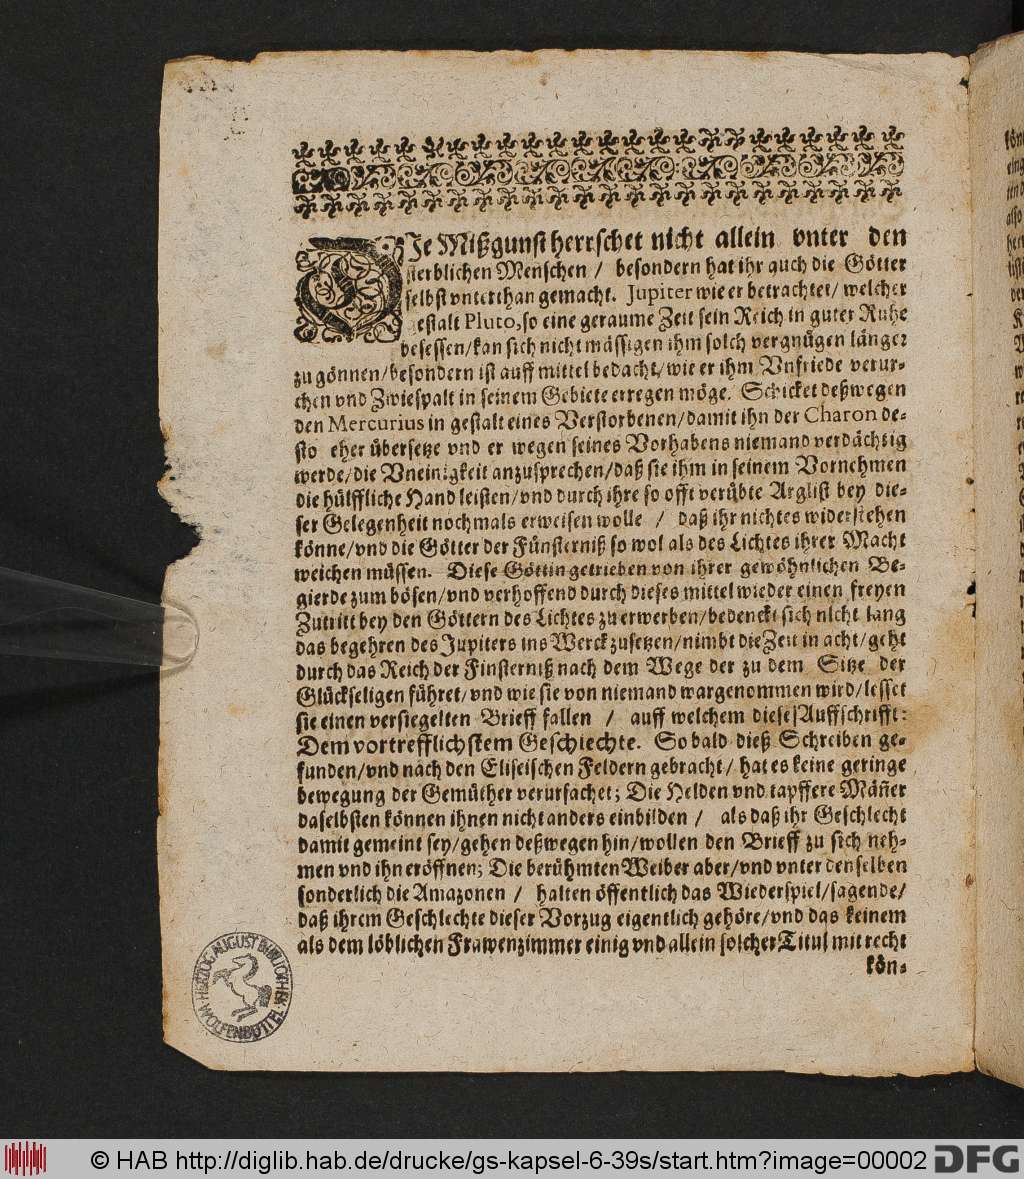 DJe Mißgunst herrschet nicht allein vnter den
sterblichen Menschen / besondern hat ihr auch die Götter
selbst vnterthan gemacht. Jupiter wie er betrachtet / welcher
gestalt Pluto, so eine geraume Zeit sein Reich in guter Ruhe
besessen / kan sich nicht mässigen ihm solch vergnügen länger
zu gönnen / besondern ist auff mittel bedacht / wie er ihm Vnfriede verur-
chen vnd Zwiespalt in seinem Gebiete erregen möge. Schicket deßwegen
den Mercurius in gestalt eines Verstorbenen / damit ihn der Charon de-
sto eher übersetze vnd er wegen seines Vorhabens niemand verdächtig
werde / die Vneinigkeit anzusprechen / daß sie ihm in seinem Vornehmen
die hülffliche Hand leisten / vnd durch ihre so offt verübte Arglist bey die-
ser Gelegenheit nochmals erweisen wolle / daß ihr nichtes widerstehen
könne / vnd die Götter der Fünsterniß so wol als des Lichtes ihrer Macht
weichen müssen. Diese Göttin getrieben von ihrer gewöhnlichen Be-
gierde zum bösen / vnd verhoffend durch dieses mittel wieder einen freyen
Zutritt bey den Göttern des Lichtes zu erwerben / bedenckt sich nicht lang
das begehren des Jupiters ins Werck zusetzen / nimbt die Zeit in acht / geht
durch das Reich der Finsterniß nach dem Wege der zu dem Sitze der
Glückseligen führet / vnd wie sie von niemand wargenommen wird / lesset
sie einen versiegelten Brieff fallen / auff welchem diese Auffschrifft:
Dem vortrefflichstem Geschlechte. So bald dieß Schreiben ge-
funden / vnd nach den Eliseischen Feldern gebracht / hat es keine geringe
bewegung der Gemüther verursachet; Die Helden vnd tapffere Mäñer
daselbsten können ihnen nicht anders einbilden / als daß ihr Geschlecht
damit gemeint sey / gehen deßwegen hin / wollen den Brieff zu sich neh-
men vnd ihn eröffnen; Die berühmten Weiber aber / vnd vnter denselben
sonderlich die Amazonen / halten öffentlich das Wiederspiel / sagende /
daß ihrem Geschlechte dieser Vorzug eigentlich gehöre / vnd das keinem
als dem löblichen Frawenzimmer einig vnd allein solcher Titul mit recht
kön-
HERZOG AUGUST BIBLIOTHEK
WOLFENBÜTTEL
© HAB http://diglib.hab.de/drucke/gs-kapsel-6-39s/start.htm?image=00002
DFG